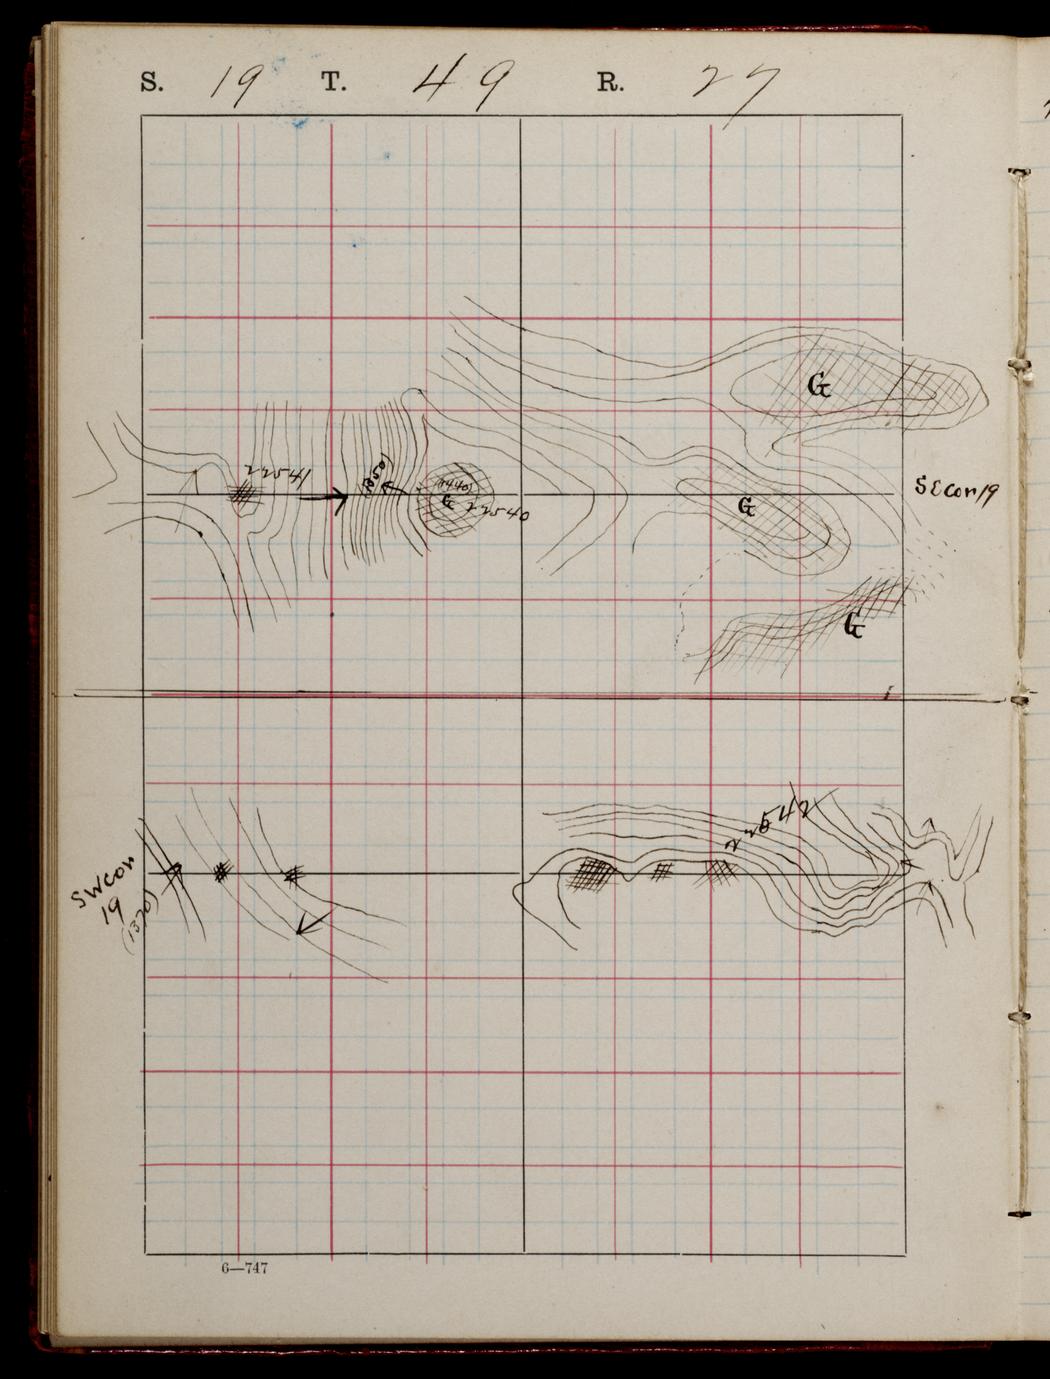 S. 19 T. 49 R. 27
G
22541
(1440)
G 22540
G
SE Cor 19
G
22542
SW Cor
19
(1370)
6—747